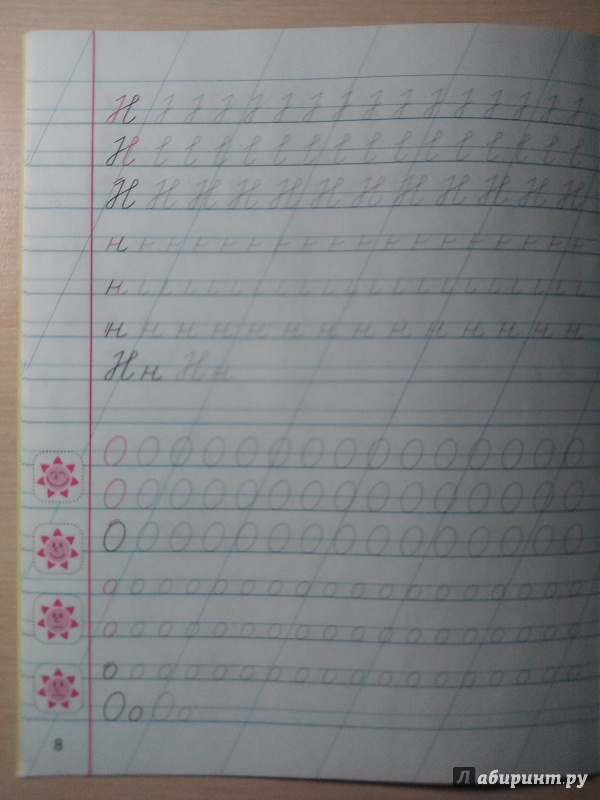 Н
Н
Н Н Н Н Н Н Н Н Н Н Н Н
н
н
н н н н н н н н н н н н н н
Нн Нн
О О О О О О О О О О О О О О О
О О О О О О О О О О О О О О О
О О О О О О О О О О О О О О О
о о о о о о о о о о о о о о о о о о
о о о о о о о о о о о о о о о о о о
о о о о о о о о о о о о о о о о о о
Оо Оо
8
Лабиринт.ру